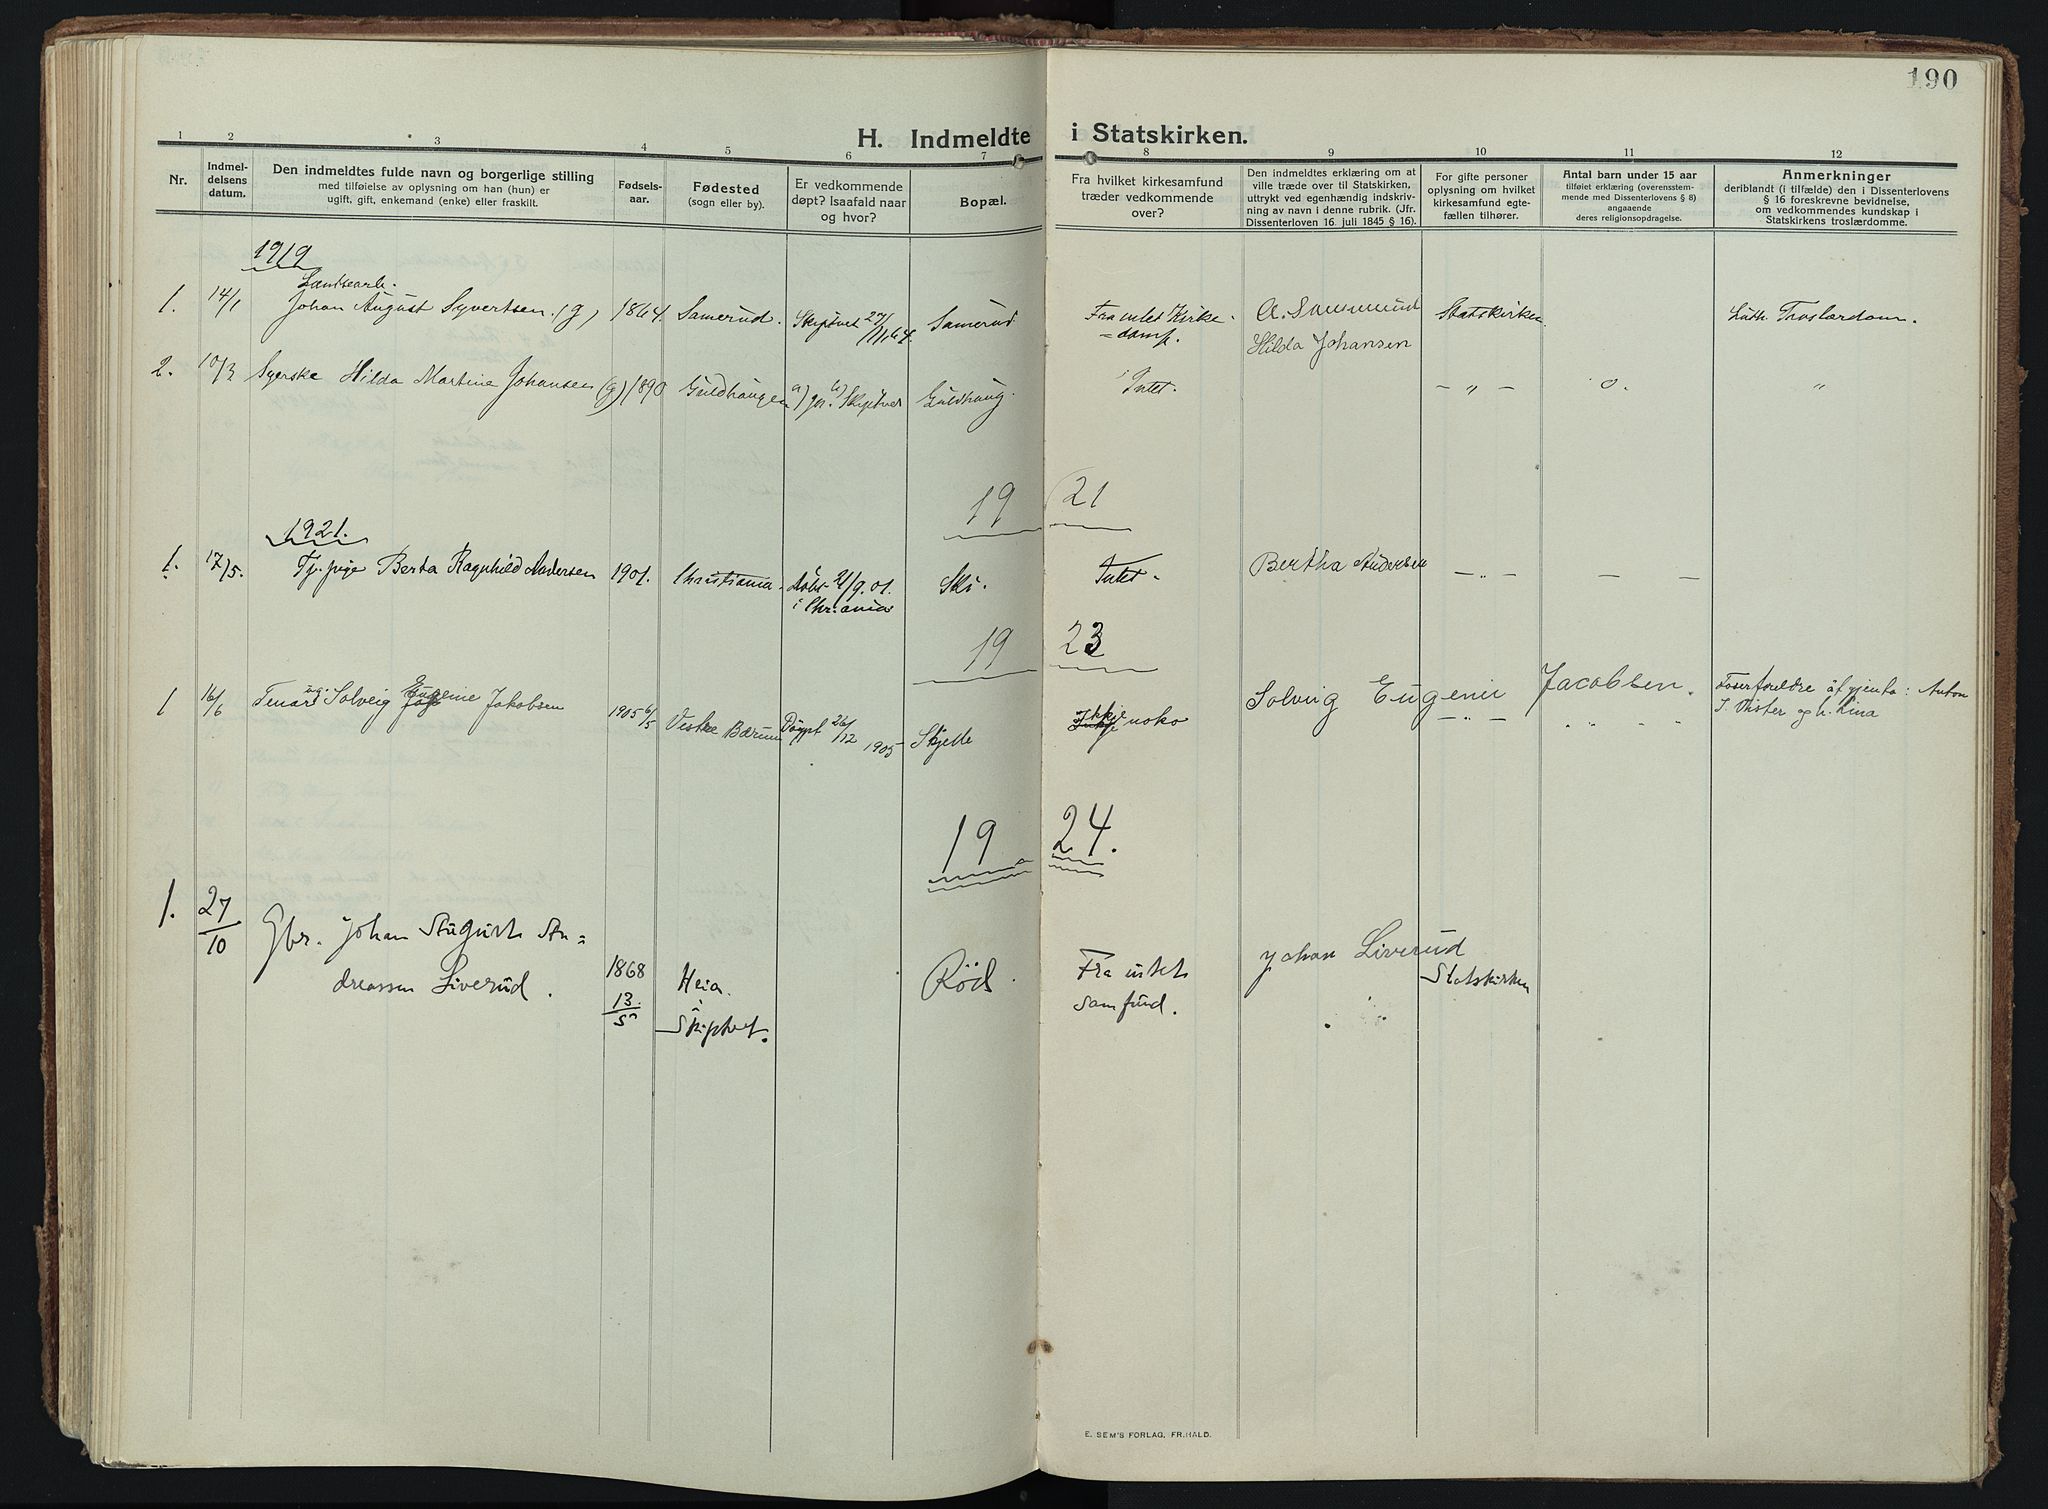 190
H. Indmeldte i Statskirken.
1 2 3 4 5 6 7 8 9 10 11 12
Nr.
Indmel-
delsens
datum.
Den indmeldtes fulde navn og borgerlige stilling
med tilføielse av oplysning om han (hun) er
ugift, gift, enkemand (enke) eller fraskilt.
Fødsels-
aar.
Fødested
(sogn eller by).
Er vedkommende
døpt? Isaafald naar
og hvor?
Bopæl.
Fra hvilket kirkesamfund
træder vedkommende
over?
Den indmeldtes erklæring om at
ville træde over til Statskirken,
uttrykt ved egenhændig indskriv-
ning av navn i denne rubrik. (Jfr.
Dissenterloven 16. juli 1845 § 16).
For gifte personer
oplysning om hvilket
kirkesamfund egte-
fællen tilhører.
Antal barn under 15 aar
tilføiet erklæring (overensstem-
mende med Dissenterlovens § 8)
angaaende
deres religionsopdragelse.
Anmerkninger
deriblandt (i tilfælde) den i Dissenterlovens
§ 16 foreskrevne bevidnelse,
om vedkommendes kundskap i
Statskirkens troslærdomme.
1919
1. 14/1 Johan August Syvertsen. (g) 1864. Samerud. Skiptvet 27/11, 64. Samerud Fra intet Kirke- Statskirken Luth. Troslærdom.
=samf.
2. 10/3 Syerske Hilda Martine Johansen (g) 1890 Guldhaugen a) ja. b) Skiptvet Guldhaug. Intet. Hilda Johansen — „ — 0. „
19 21
1921.
1. 17/5. Tj. pige Berta Ragnhild Andersen 1901. Christiania. Døbt 21/9. 01. Ski. Intet. Bertha Andersen — „ — — —
i Chr.ania
19 23
1 16/6 ug. Solveig Eugenie Jakobsen 1905 6/5 Vestre Bærum Døypt 26/12 1905 Skjelle Ikkje noko Solveig Eugenie Jacobsen. Fosterforeldre åt gjenta: Anton
19 24.
1. 27/10 Gbr. Johan August An=
dreassen Liverud. 1868 13/5 Heia i Skiptvet. Rød. Fra intet Samfund. Johan Liverud Statskirken
E. SEM'S FORLAG, FR.HALD.